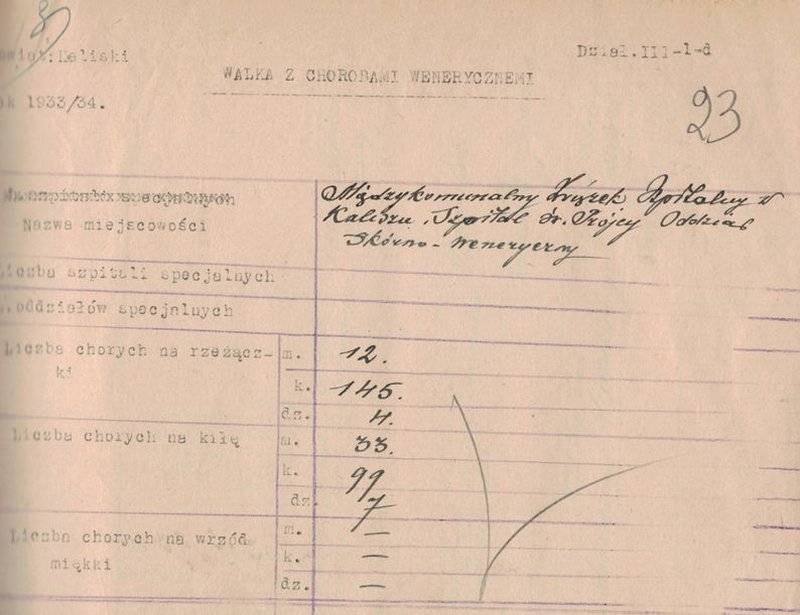 Powiat: Kaliski
Dział.III-1-d
WALKA Z CHOROBAMI WENERYCZNEMI
Rok 1933/34.
23
szpitali specjalnych
Nazwa miejscowości
Międzykomunalny Związek Szpitalny w
Kaliszu. Szpital św. Trójcy Oddział
Skórno-weneryczny
Liczba szpitali specjalnych
L.oddziałów specjalnych
Liczba chorych na rzeżącz-
ki
m. 12.
k. 145.
dz. 4.
Liczba chorych na kiłę
m. 33.
k. 99
dz. 7
Liczba chorych na wrzód
miękki
m. —
k. —
dz. —